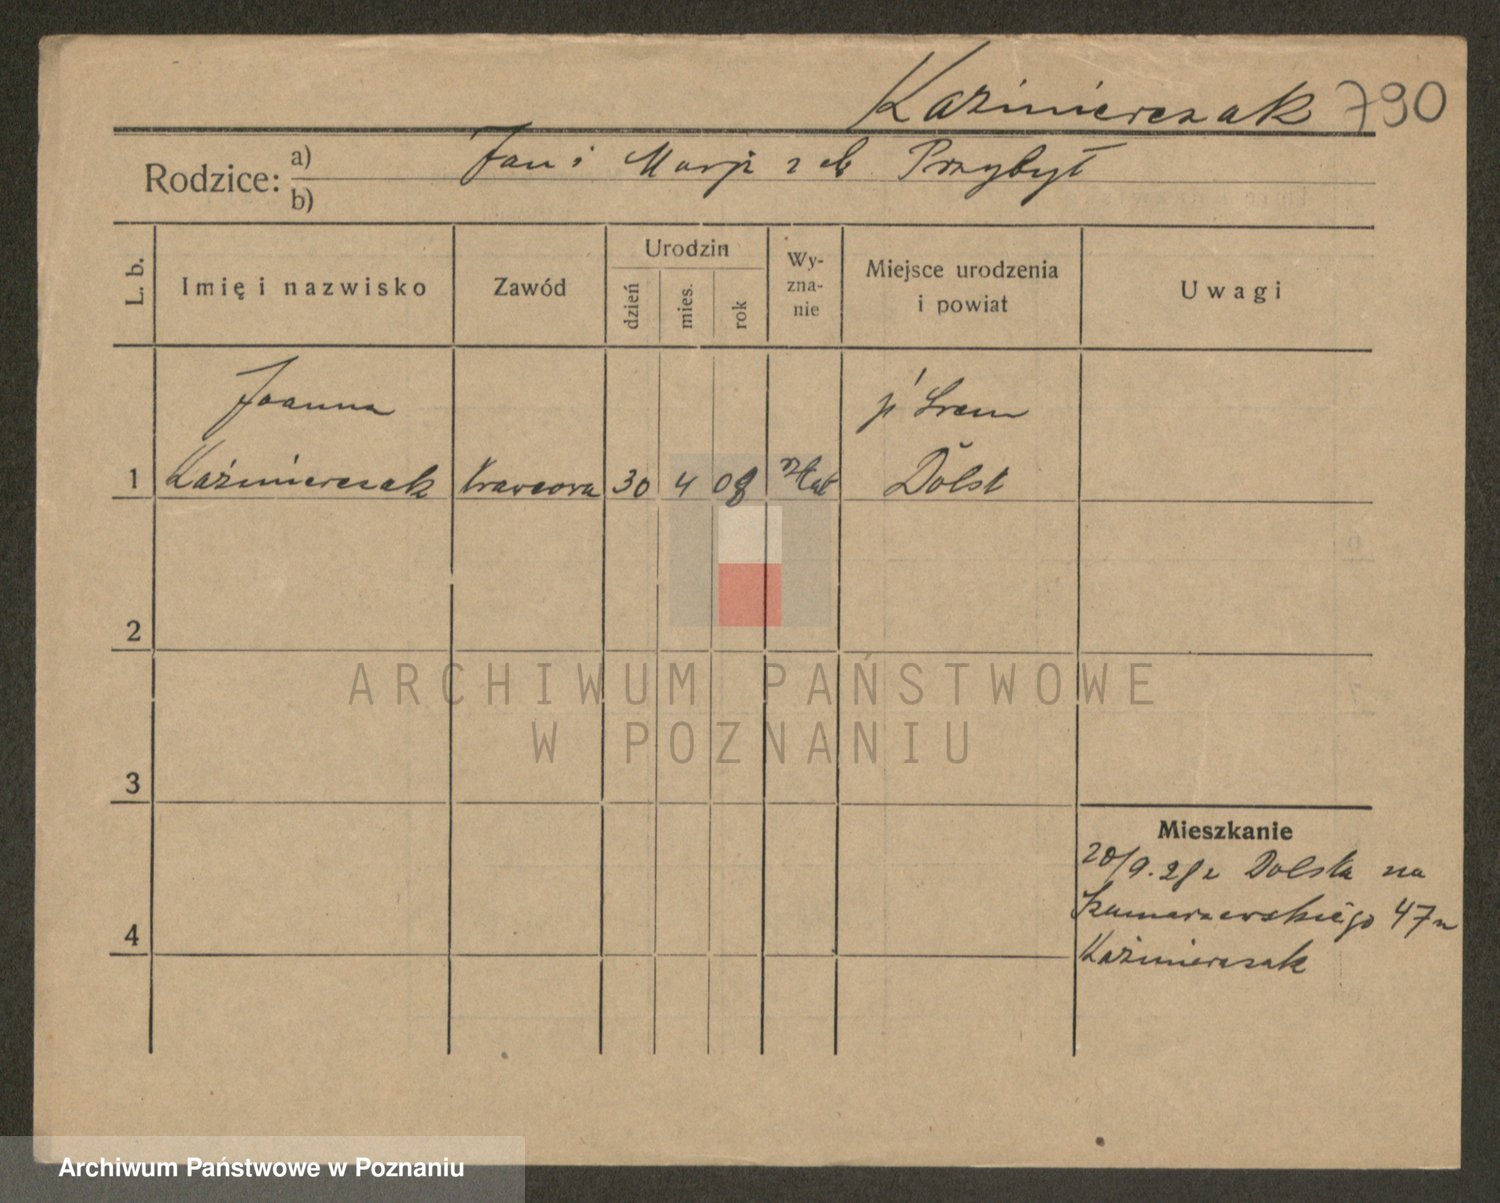 Kaźmierczak 790
Rodzice: a) Jan i Marji z d. Przybył
b)
L. b.
Imię i nazwisko
Zawód
Urodzin
dzień
mies.
rok
Wy-
zna-
nie
Miejsce urodzenia
i powiat
Uwagi
Joanna
p. Śrem
1 Kaźmierczak Krawcowa 30 4 08 rz kat Dolsk
2
ARCHIWUM PAŃSTWOWE
W POZNANIU
3
Mieszkanie
20/9. 28 z Dolska na
4 Szamarzewskiego 47 u
Kaźmierczak
Archiwum Państwowe w Poznaniu